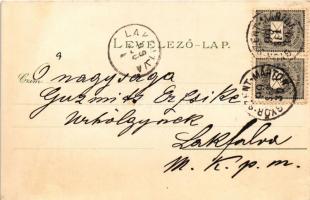 LEVELEZŐ-LAP.
Czim:
Ő nagysága
Guzmits Erzsike
Urhölgynek
Lakfalva
M. K. p. m.